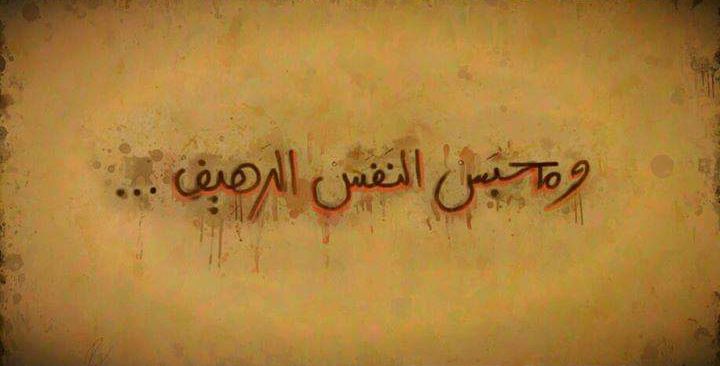 ومحبَس النَفَسْ الرهيف ...